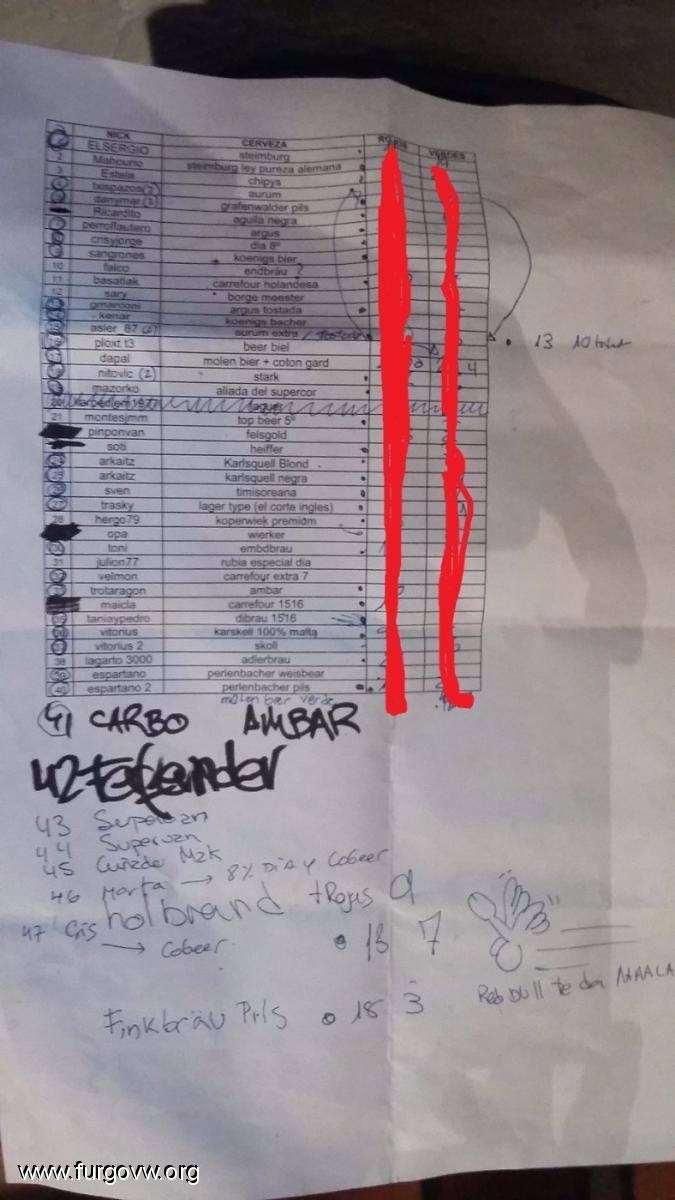 NICK CERVEZA ROJOS VERDES
ELSERGIO steimburg
2 Mahouno steimburg ley pureza alemana
3 Estela chipys
bispazos(2) aurum
danymar(2) grafenwalder pils
Ricardito aguila negra
perroflautero argus
crisyjorge dia 8º
sangrones koenigs bier
10 falco endbräu ?
11 basatiak carrefour holandesa
12 sary borge meester
argus tostada
kenar koenigs bacher
asier_87 (2) aurum extra / tostada
ploxt t3 beer biel 13 10
dapal molen bier + coton gard 4
nitovic (2) stark
mazorko aliada del supercor
20
21 montesjmm top beer 5º
pinponvan felsgold
soti heiffer
arkaitz Karlsquell Blond
arkaitz karlsquell negra
sven timisoreana
27 trasky lager type (el corte ingles)
28 hergo79 koperwiek premium
opa wierker
30 toni embdbrau
31 julion77 rubia especial dia
32 velmon carrefour extra 7
trotaragon ambar
maicla carrefour 1516
35 taniaypedro dibrau 1516
36 vitorius karskell 100% malta
vitorius 2 skoll
38 lagarto 3000 adlerbrau
39 espartano perlenbacher weisbear
40 espartano 2 perlenbacher pils
molen bier verde
41 CARBO AMBAR
42
43 Supervan
44 Supervan
45 M2K
46 Marta → 8% DIA Y Cobeer
holbrand + Rojas 9
47 Cris → Cobeer 13 7
Finkbräu Pils 18 3
Red Dull te da MAALA
www.furgovw.org